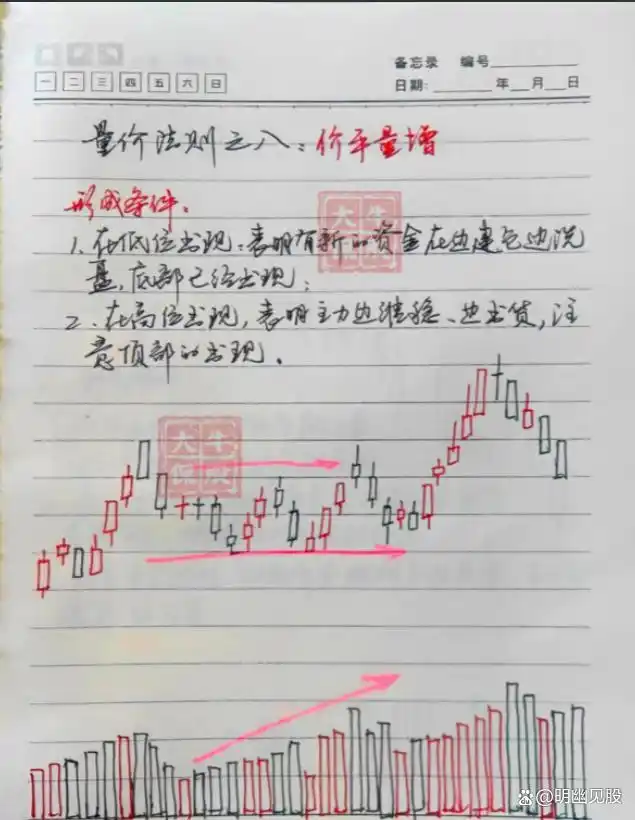 备忘录 编号
一 二 三 四 五 六 日
日期: 年 月 日
量价法则之八：价平量增
形成条件：
1、在低位出现，表明有新的资金在边建仓边洗
盘，底部已经出现；
2、在高位出现，表明主力边维稳、边出货，注
意顶部的出现。
大牛
大牛
保股
明幽见股